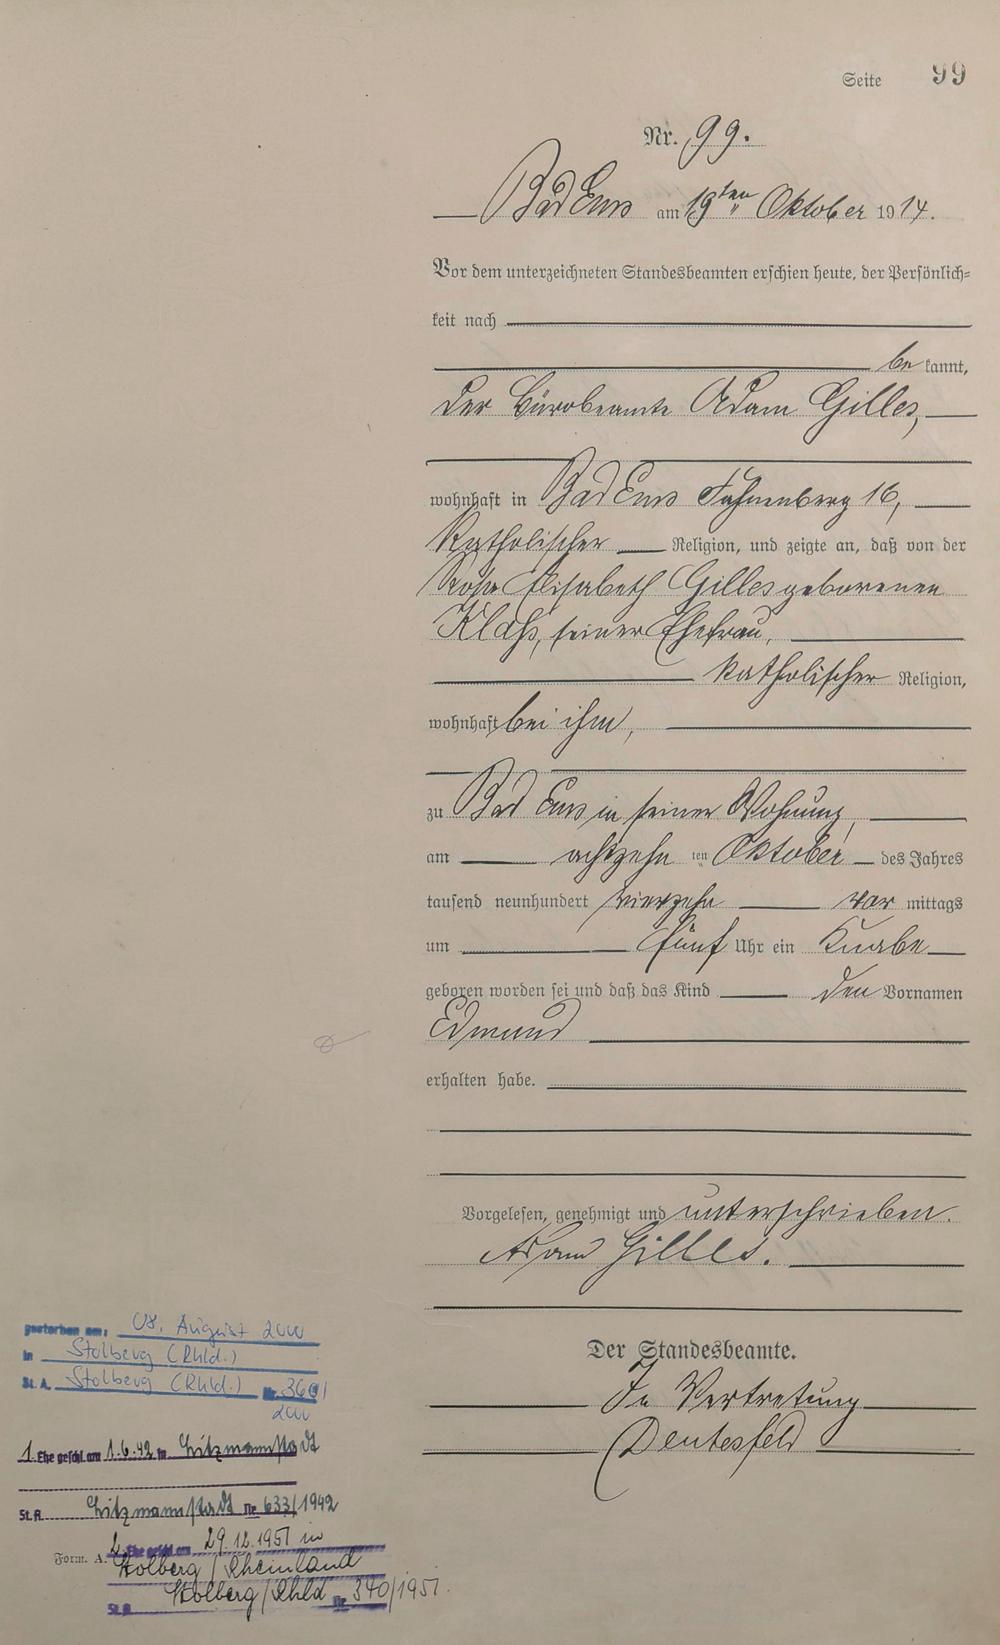 Seite 99
Nr. 99.
Bad Ems am 19ten Oktober 1914.
Vor dem unterzeichneten Standesbeamten erschien heute, der Persönlich=
keit nach
be kannt,
der Bürobeamte Adam Gilles,
wohnhaft in Bad Ems Fahnenberg 16,
katholischer Religion, und zeigte an, daß von der
Rosa Elisabeth Gilles geborenen
Klaß, seiner Ehefrau,
katholischer Religion,
wohnhaft bei ihm,
zu Bad Ems in seiner Wohnung,
am achtzehn ten Oktober des Jahres
tausend neunhundert vierzehn vor mittags
um fünf Uhr ein Knabe
geboren worden sei und daß das Kind den Vornamen
Edmund
erhalten habe.
Vorgelesen, genehmigt und unterschrieben.
Adam Gilles.
Der Standesbeamte.
In Vertretung
gestorben am: 08. August 2000
in Stolberg (Rhld.)
St. A. Stolberg (Rhld.) Nr.
2000
1. Ehe geschl. am 1.6.42 in Litzmannstadt
St. A. Litzmannstadt Nr. 633/1942
2. Ehe geschl. am 29.12.1951 in
Form. A. Stolberg/Rheinland
St. A. Stolberg/Rhld Nr. 340/1951.